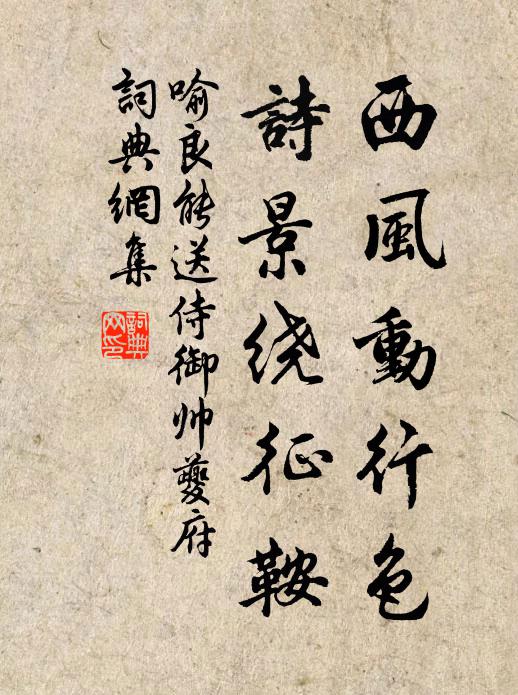 西風動行色
詩景绕征鞍
喻良能送侍御帅夔府
詞典網集
詞典
网印